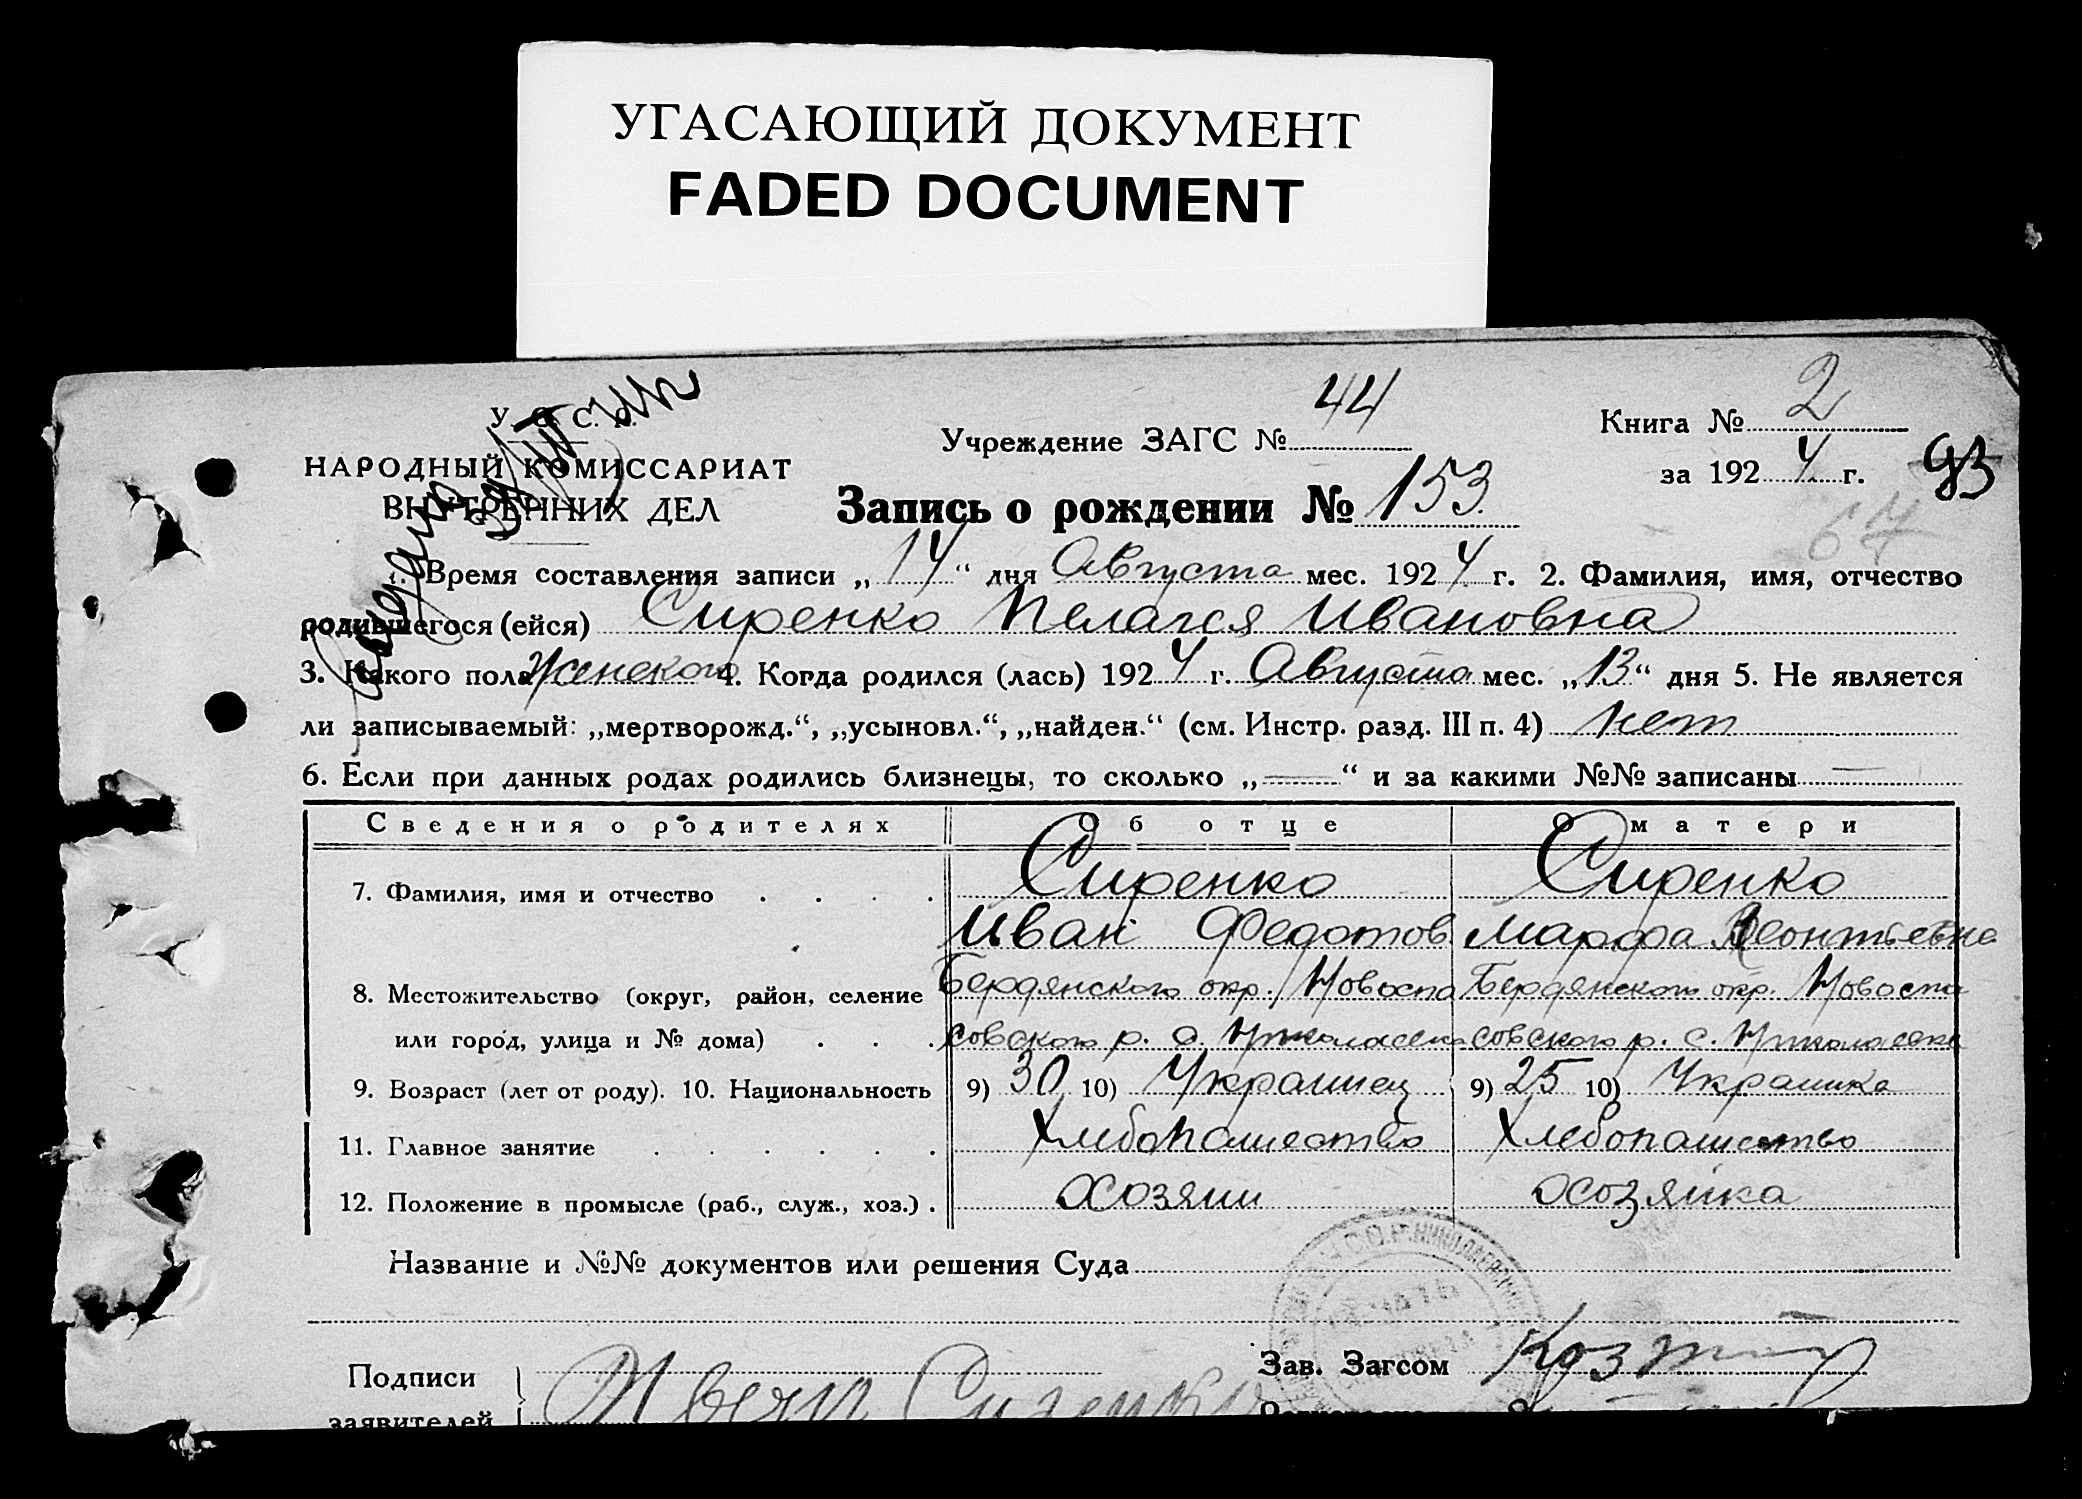 УГАСАЮЩИЙ ДОКУМЕНТ
FADED DOCUMENT
У. С. С. Р.
НАРОДНЫЙ КОМИССАРИАТ
ВНУТРЕННИХ ДЕЛ
Учреждение ЗАГС № 44
Книга № 2
за 1924 г. 93
67
Запись о рождении № 153
1. Время составления записи „14“ дня Августа мес. 1924 г. 2. Фамилия, имя, отчество
родившегося (ейся) Сиренко Пелагея Ивановна
3. Какого пола Женского 4. Когда родился (лась) 1924 г. Августа мес. „13“ дня 5. Не является
ли записываемый: „мертворожд.“, „усыновл.“, „найден.“ (см. Инстр. разд. III п. 4) нет
6. Если при данных родах родились близнецы, то сколько „—“ и за какими №№ записаны —
Сведения о родителях Об отце О матери
7. Фамилия, имя и отчество . . . . Сиренко Сиренко
Иван Федотов Марфа Леонтьевна
8. Местожительство (округ, район, селение Бердянского окр. Новоспа Бердянского окр. Новоспа
или город, улица и № дома) . . . совского р. с. совского р. с.
9. Возраст (лет от роду). 10. Национальность 9) 30 10) Украинец 9) 25 10) Украинка
11. Главное занятие . . . . . . Хлебопашество Хлебопашество
12. Положение в промысле (раб., служ., хоз.) . Хозяин Хозяйка
Название и №№ документов или решения Суда
Подписи
заявителей
Иван Сиренко
Зав. Загсом